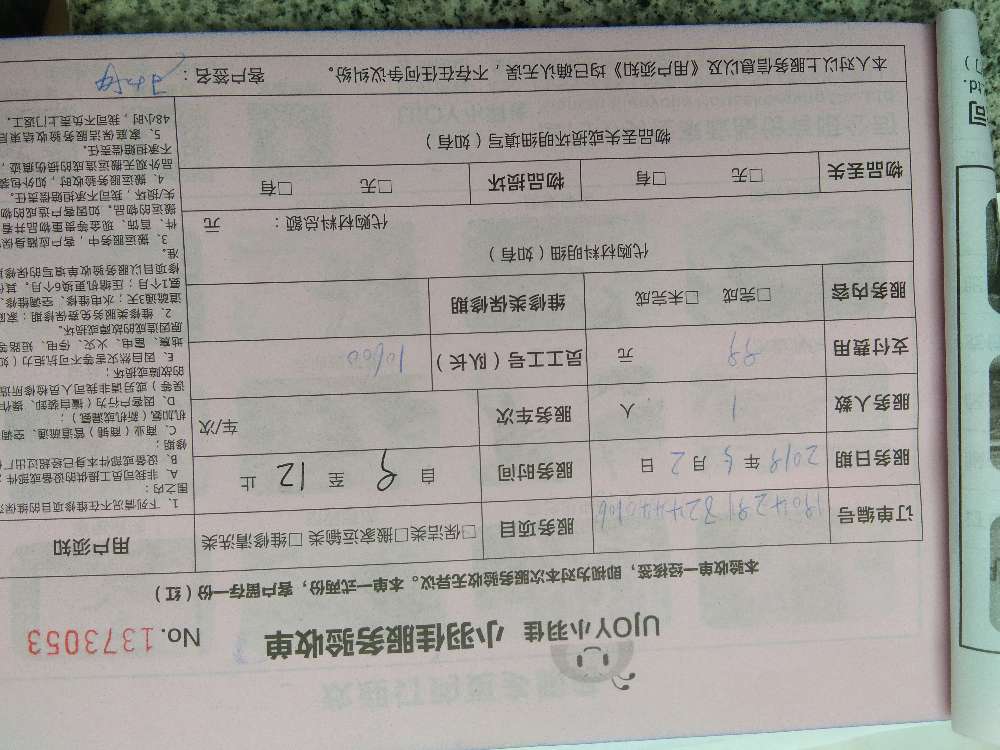 UJOY小羽佳 小羽佳服务验收单 No. 1373053
本验收单一经核签，即视为对本次服务验收无异议。本单一式两份，客户留存一份（红）
订单编号 服务项目 □保洁类□搬家运输类 □维修清洗类
服务日期 2019 年 5 月 2 日 服务时间 自 8 至 12 止
服务人数 1 人 服务车次 车/次
支付费用 99 元 员工工号（队长） 10600
服务内容 □完成 □未完成 维修类保修期
代购材料明细（如有）
代购材料总额： 元
物品丢失 □无 □有 物品损坏 □无 □有
物品丢失或损坏明细填写（如有）
本人对以上服务信息以及《用户须知》均已确认无误，不存在任何争议纠纷。 客户签名：
用户须知
1、下列情况不在维修项目的维保
围之内：
A、非我司员工提供的设备或部件
B、设备或部件本身已经超过出厂
修期；
C、商业（商铺）管道疏通、空调
机加氨（新机或漏氨）；
D、因客户行为（擅自装卸、操作
误等）或另请非我司人员检修所造
的故障或损坏；
E、因自然灾害等不可抗力（如
地震、雷电、火灾、停电、短路等
原因造成的故障或损坏。
2、维修类服务免费保修期：家庭
道疏通3天；水电维修、空调维修、
氨1个月；压缩机更换6个月，其他
修项目以服务验收单填写的保修
准。
3、搬运服务中，客户应随身保
件、首饰、现金等贵重物品并看
搬运的物品，如因客户造成的物
失/损坏，我司不承担赔偿责任。
4、搬运服务验收时，如外包装
品外观无搬运造成的损伤痕迹，
不承担赔偿责任。
5、家庭保洁服务验收结束后
48小时，我司不负责上门返工。
司
td.